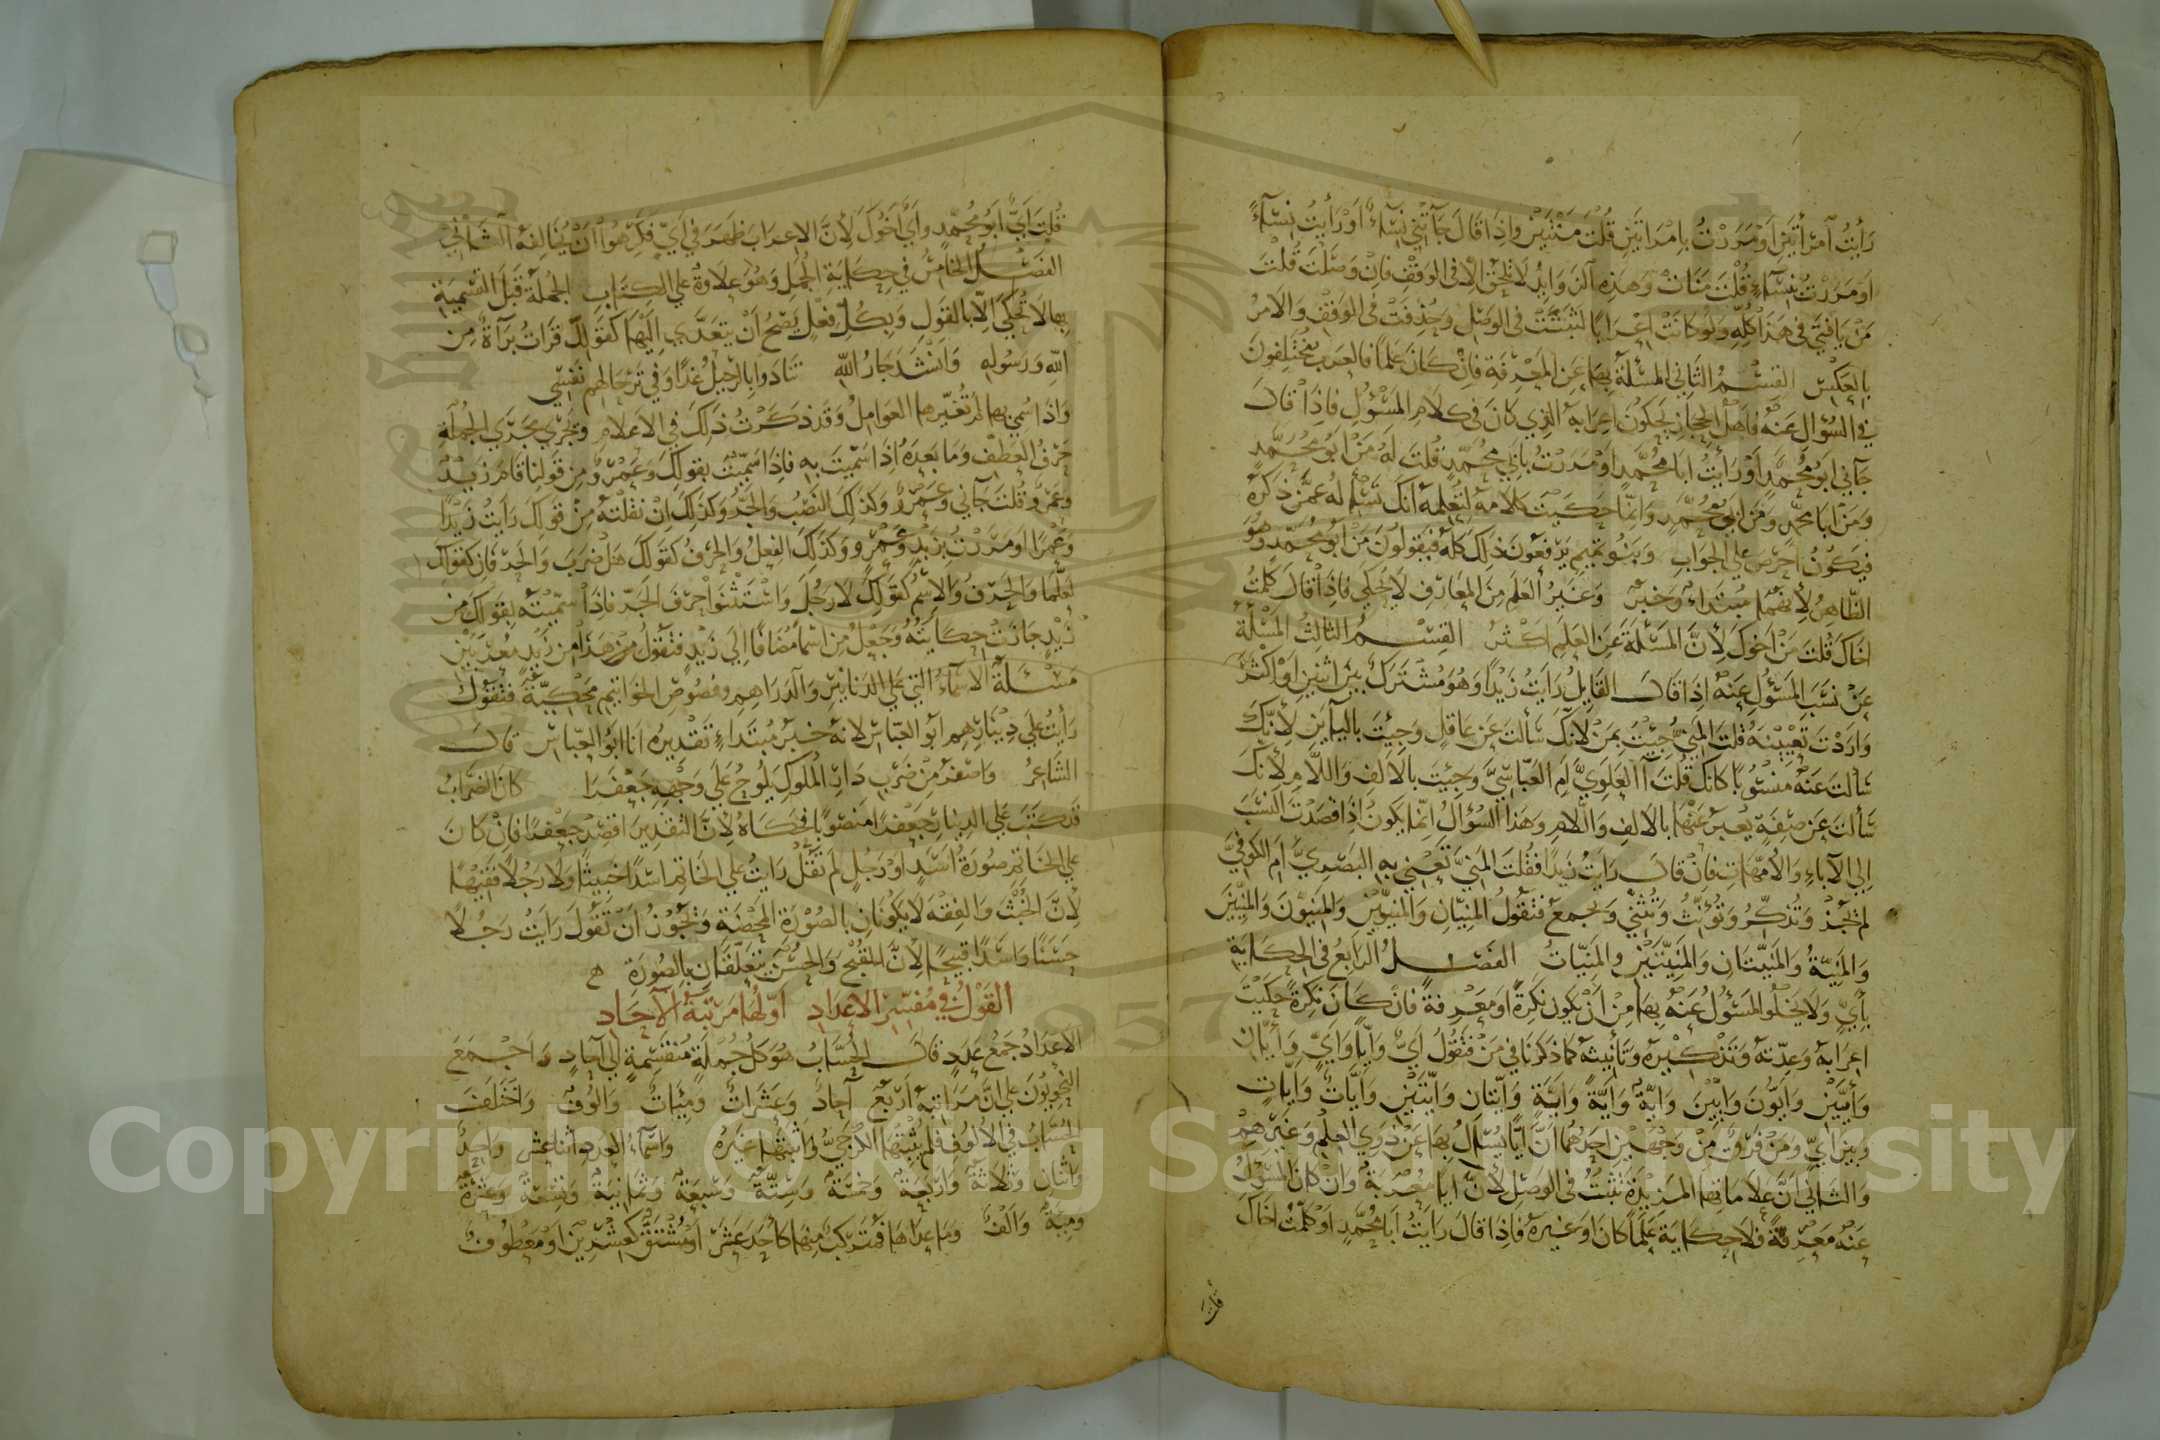 رَأيْتُ امْرَأَتَيْنِ اَوْمَرَرْتُ بِامْرَاتَيْنِ قُلْتَ مَنْتَيْنْ وَاِذَا قَالَ جَآتْنِي نِسَآءٌ اَوْ رَأيْتُ نِسَآءً
اَوْمَرَرْتُ بِنِسَآءٍ قُلْتَ مَنَاتْ وَهَذِهِ الزَّوَايِدُ لَا تَلْحَقُ اِلَّا فى الوَقْفِ فَاِنْ وَصَلْتَ قُلْتَ
مَنْ يَافَتَي فى هَذَا كُلِّهِ وَلَو كَانَتْ اِعْرَابًا لَثَبَتَتْ فى الوَصْلِ وَحُذِفَتْ فى الوَقْفِ وَالاَمْرُ
بِالعَكْسِ القِسْمُ الثَّانِي المَسْئَلَةُ بِهَا عَنِ المَعْرِفَةِ فَاِنْ كَانَ عَلَمًا فَالعَرَبُ مُخْتَلِفُونَ
في السُّؤَالِ عَنْهُ فَاَهْلُ الحِجَازِ يَحكُونَ اِعرَابَهُ الَّذِي كَانَ فى كَلَامِ المَسْؤُلِ فَاِذَا قَالَ
جَآنِي اَبُو مُحَمَّدٍ اَوْ رَأيْتُ اَبَا مُحَمَّدٍ اَوْمَرَرْتُ بِاَبِي مُحَمَّدٍ قُلْتَ لَهُ مَنْ اَبُو مُحَمَّدٍ
وَمَنْ اَبَا مُحَمَّدٍ وَمَنْ اَبِي مُحَمَّدٍ وَاِنَّمَا حَكَيْتَ كَلَامَهُ لِتُعْلِمَهُ اَنَّكَ تَسْئَلُهُ عَمَّنْ ذَكَرَهُ
فَيَكُوْنُ اَحْرَصَ عَلَي الجَوَابِ وَبَنُو تَمِيمٍ يَرْفَعُونَ ذَلِكَ كُلَّهُ فَيَقُولُونَ مَنْ اَبُو مُحَمَّدٍ وَهُوَ
الظَّاهِرُ لِاَنَّهُمَا مُبْتَدَاءٌ وَخَبَرٌ وَغَيْرُ العَلَمِ مِنَ المَعَارِفِ لَا يُحْكَي فَاِذَا قَالَ كَلَّمْتُ
اَخَاكَ قُلْتَ مَنْ اَخُوكَ لِاَنَّ المَسْئَلَةَ عَنِ العَلَمِ اَكْثَرُ القِسْمُ الثَّالِثُ المَسْئَلَةُ
عَنْ نَسَبِ المَسْؤُلِ عَنْهُ اِذَا قَالَ القَايِلُ رَأيْتُ زَيْدًا وَهُوَ مُشْتَرَكٌ بَيْنَ اثْنَيْنِ اَوْ اَكْثَرَ
وَاَرَدْتَ تَعْيِيْنَهُ قُلْتَ المَنِيَّ جِيْتَ بِمَنْ لِاَنَّكَ سَأَلْتَ عَنْ عَاقِلٍ وَجِيْتَ بِاليَآيَنِ لِاَنَّكَ
سَألْتَ عَنْهُ مَنْسُوْبًا كَاَنَّكَ قُلْتَ آالعَلَوِيَّ اَمِ العَبَّاسِيَّ وَجِيْتَ بِالاَلِفِ وَاللَّامِ لِاَنَّكَ
سَألْتَ عَنْ صِفَةٍ يُعَبَّرُ عَنْهَا بِالاَلِفِ وَاللَّامِ وَهَذَا السُّؤَالُ اِنَّمَا يَكُونُ اِذَا قَصَدْتَ النَّسَبَ
اِلَي الآبَاءِ وَالاُمَّهَاتِ فَاِنْ قَالَ رَايْتُ زَيْدًا فَقُلْتَ المَنِيَّ تَعْنِي بِهِ البَصْرِيَّ اَمِ الكُوفِيَّ
لَمْ يَجُزْ وَتُذَكِّرُ وَتُؤَنِّثُ وَتُثَنِّي وَتَجْمَعُ فَتَقُولُ المَنِيَّانِ وَالمَنِيَّيْنِ وَالمَنِيُّونَ وَالمَنِيِّينَ
وَالمَنِيَّةُ وَالمَنِيَّتَانِ وَالمَنِيَّتَيْنِ وَالمَنِيَّاتُ الفَصْلُ الرَّابِعُ فى الحِكَايَةِ
بِاَيٍّ وَلَا يَخْلُوا المَسْؤُلُ عَنْهُ بِهَا مِنْ اَنْ يَكُونَ نَكِرَةً اَوْ مَعْرِفَةً فَاِنْ كَانَ نَكِرَةً حَكَيْتَ
اِعْرَابَهُ وَعِدَّتَهُ وَتَذْكِيْرَهُ وَتَأنِيثَهُ كَمَا ذَكَرْنَا فى مَنْ فَتَقُولُ اَيٌّ وَاَيًّا وَاَيٍّ وَاَيَّانْ
وَاَيَّيْنْ وَاَيُّونَ وَاَيِّيْنَ وَاَيَّةٌ وَاَيَّةً وَاَيَّةٍ وَاَيَّتَانِ وَاَيَّتَيْنِ وَاَيَّاتٌ وَاَيَّاتٍ
وَبَيْنَ اَيٍّ وَمَنْ فَرْقٌ مِنْ وَجْهَيْنِ اَحَدُهُمَا اَنَّ اَيًّا يُسْاَلُ بِهَا عَنْ ذَوِي العِلْمِ وَغَيْرِهِمْ
وَالثَّانِي اَنَّ عَلَامَاتِهَا المَزِيْدَةَ تَثْبُتُ فى الوَصْلِ لِاَنَّ اَيًّا مُعْرَبَةٌ وَاِنْ كَانَ المَسْؤُلُ
عَنْهُ مَعْرِفَةً فَلَا حِكَايَةَ عَلَمًا كَانَ اَوْ غَيْرَهُ فَاِذَا قَالَ رَايْتُ اَبَا مُحَمَّدٍ اَوْ كَلَّمْتُ اَخَاكَ
قلت
قُلْتَ اَيٌّ اَبُو مُحَمَّدٍ وَاَيٌّ اَخُوكَ لِاَنَّ الاِعرَابَ ظَهَرَ فى اَيٍّ فَكَرِهُوا اَنْ يُخَالِفَهُ الثَّانِي
الفَصْلُ الخَامِسُ فى حِكَايَةِ الجُمَلِ وَهُوَ عِلَاوَةٌ عَلَي الكِتَابِ الجُملَةُ قَبْلَ التَّسْمِيَةِ
بِهَا لَا تُحْكَي اِلَّا بِالقَوْلِ وَبِكُلِّ فِعْلٍ يَصْحُّ اَنْ يَتَعَدَّي اِلَيْهَا كَقَوْلِكَ قَرَاتُ بَرَآةٌ مِنَ
اللهِ وَرَسُولِهِ وَاَنْشَدَ جَارُ اللهِ تَنَادَوا بِالرَّحِيلُ غَدًا وَفي تَرْحَالِهِم نَفْسِي
وَاذَا سُمِيَ بِهَا لَمْ تُغَيِّرهَا العَوَامِلُ وَقَدْ ذَكَرْتُ ذَلِكَ فى الاَعلَامِ وَيَجْرِي مَجْرَي الجُملَةِ
حَرْفُ العَطْفِ وَمَا بَعدَهُ اِذَا سَمَّيْتَ بِهِ فَاِذَا سَمَّيْتَ بِقَولِكَ وَعَمْرٌو مِنْ قَولِنَا قَامَ زَيْدٌ
وَعَمْرٌو قُلْتَ جَآنِي وَعَمْرٌو وَكَذَلِكَ النَّصْبُ وَالجَرُّ وَكَذَلِكَ اِنْ نَقَلْتَهُ مِنْ قَولِكَ رَايْتُ زَيْدًا
وَعَمْرًا اَوْ مَرَرْتُ بِزَيْدٍ وَعَمْرٍو وَكَذَلِكَ الفِعْلُ وَالحَرْفُ كَقَولِكَ هَلْ ضَرَبَ وَالحَرْفَانِ كَقَولِكَ
لَعَلَّمَا وَالحَرْفُ وَالاِسْمُ كَقَولِكَ لَا رَجُلَ وَاسْتَثْنَوْا حَرْفَ الجَرِّ فَاِذَا سَمَّيْتَهُ بِقَولِكَ مِنْ
زَيْدٍ جَازَتْ حِكَايَتُهُ وَجَعْلُ مِنِ اسْمًا مُضَافًا اِلَي زَيْدٍ فَتَقُولُ هَذَا مِنُ زَيْدٍ مُعْرَبَيْنِ
مَسْئَلَةٌ الاَسْمَاءُ الَّتِي عَلَي الدَّنَانِيْرِ وَالدَّرَاهِمِ وَفُصُوصِ الخَوَاتِيمِ مَحْكِيَّةٌ فَتَقُولُ
رَأيْتُ عَلَي دِيْنَارِهِمِ اَبُو العَبَّاسِ لِاَنَّهُ خَبَرُ مُبْتَدَاءٍ تَقْدِيرُهُ اَنَا اَبُو العَبَّاسِ قَالَ
الشَّاعِرُ وَاَصْفَرَ مِنْ ضَرْبِ دَارِ المُلُوكِ يَلُوحُ عَلَي وَجْهِهِ جَعْفَرَا كَانَ الضَّرَّابُ
قَدْ كَتَبَ عَلَي الدِينَارِ جَعْفَرًا مَنْصُوبًا فَحَكَاهُ لِاَنَّ التَّقْدِيرَ اقْصِدْ جَعْفَرًا فَاِنْ كَانَ
عَلَي الخَاتَمِ صُورَةُ اَسَدٍ اَوْ رَجُلٍ لَمْ تَقُلْ رَايْتُ عَلَي الخَاتَمِ اَسَدًا خَبِيثًا وَلَا رَجُلًا فَقِيهًا
لِاَنَّ الخُبْثَ وَالفِقْهَ لَا يَكُونَانِ بِالصُّوْرَةِ المَحْضَةِ وَيَجُوْزُ اَنْ تَقُولَ رَايْتُ رَجُلًا
حَسَنًا وَاَسَدًا قَبِيحًا لِاَنَّ القُبْحَ وَالحُسْنَ يَتَعَلَّقَانِ بِالصُورَةِ ه
القَوْلُ فى مُفَسِّرِ الاَعْدَادِ اَوَّلُهَا مَرْتَبَةُ الآحَادِ
الاَعدَادُ جَمْعُ عَدَدٍ قَالَ الحُسَّابُ هُوَ كُلُّ جُمْلَةٍ مُنْقَسِمَةٍ اِلَي آحَادٍ وَاَجْمَعَ
النَّحْوِيُّونَ عَلَي اَنَّ مَرَاتِبَهُ اَرْبَعٌ آحَادٌ وَعَشَرَاتٌ وَمِئَاتٌ وَاُلُوفٌ وَاخْتَلَفَ
الحُسَّابُ فى الاُلُوفِ فَلَمْ يُثْبِتْهَا الكَرْجِيُّ وَاَثْبَتَهَا غَيْرُهُ وَاَسْمَاءُ العَدَدِ اثْنَا عَشَرَ وَاحِدٌ
وَاثْنَانِ وَثَلَاثَةٌ وَاَرْبَعَةٌ وَخَمْسَةٌ وَسِتَّةٌ وَسَبْعَةٌ وَثَمَانِيَةٌ وَتِسْعَةٌ وَعَشَرَةٌ
وَمِيَةٌ وَاَلْفٌ وَمَا عَدَاهَا فَمُتَرَكِّبٌ مِنْهَا كَاَحَدَ عَشَرَ اَوْ مُشْتَقٌّ كَعِشْرِيْنَ اَوْ مَعْطُوفٌ
Copyright © King Saud University
1957